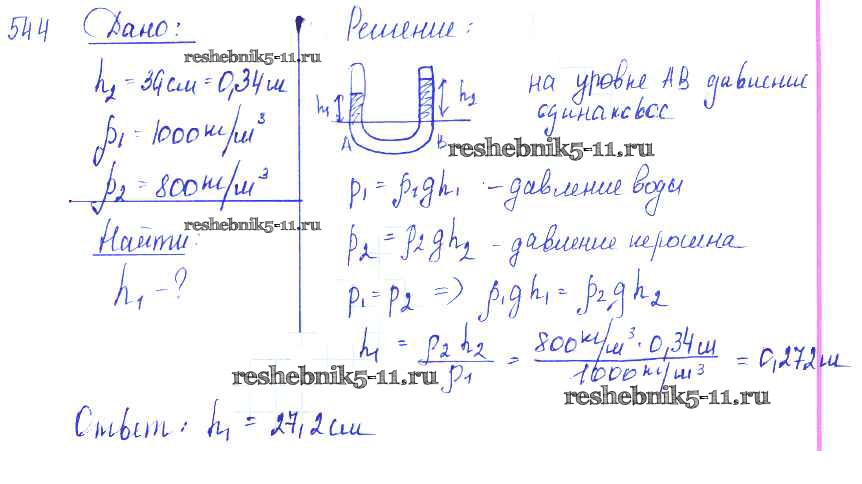 544 Дано:
reshebnik5-11.ru
h₂ = 34см = 0,34м
ρ₁ = 1000 кг/м³
ρ₂ = 800 кг/м³
reshebnik5-11.ru
Найти:
h₁ - ?
Решение:
h₁ h₂
A B
на уровне АВ давление
одинаковое
reshebnik5-11.ru
p₁ = ρ₁gh₁ - давление воды
p₂ = ρ₂gh₂ - давление керосина
p₁ = p₂ => ρ₁gh₁ = ρ₂gh₂
h₁ = ρ₂h₂/ρ₁ = 800 кг/м³ · 0,34м / 1000 кг/м³ = 0,272м
reshebnik5-11.ru
reshebnik5-11.ru
Ответ: h₁ = 27,2см